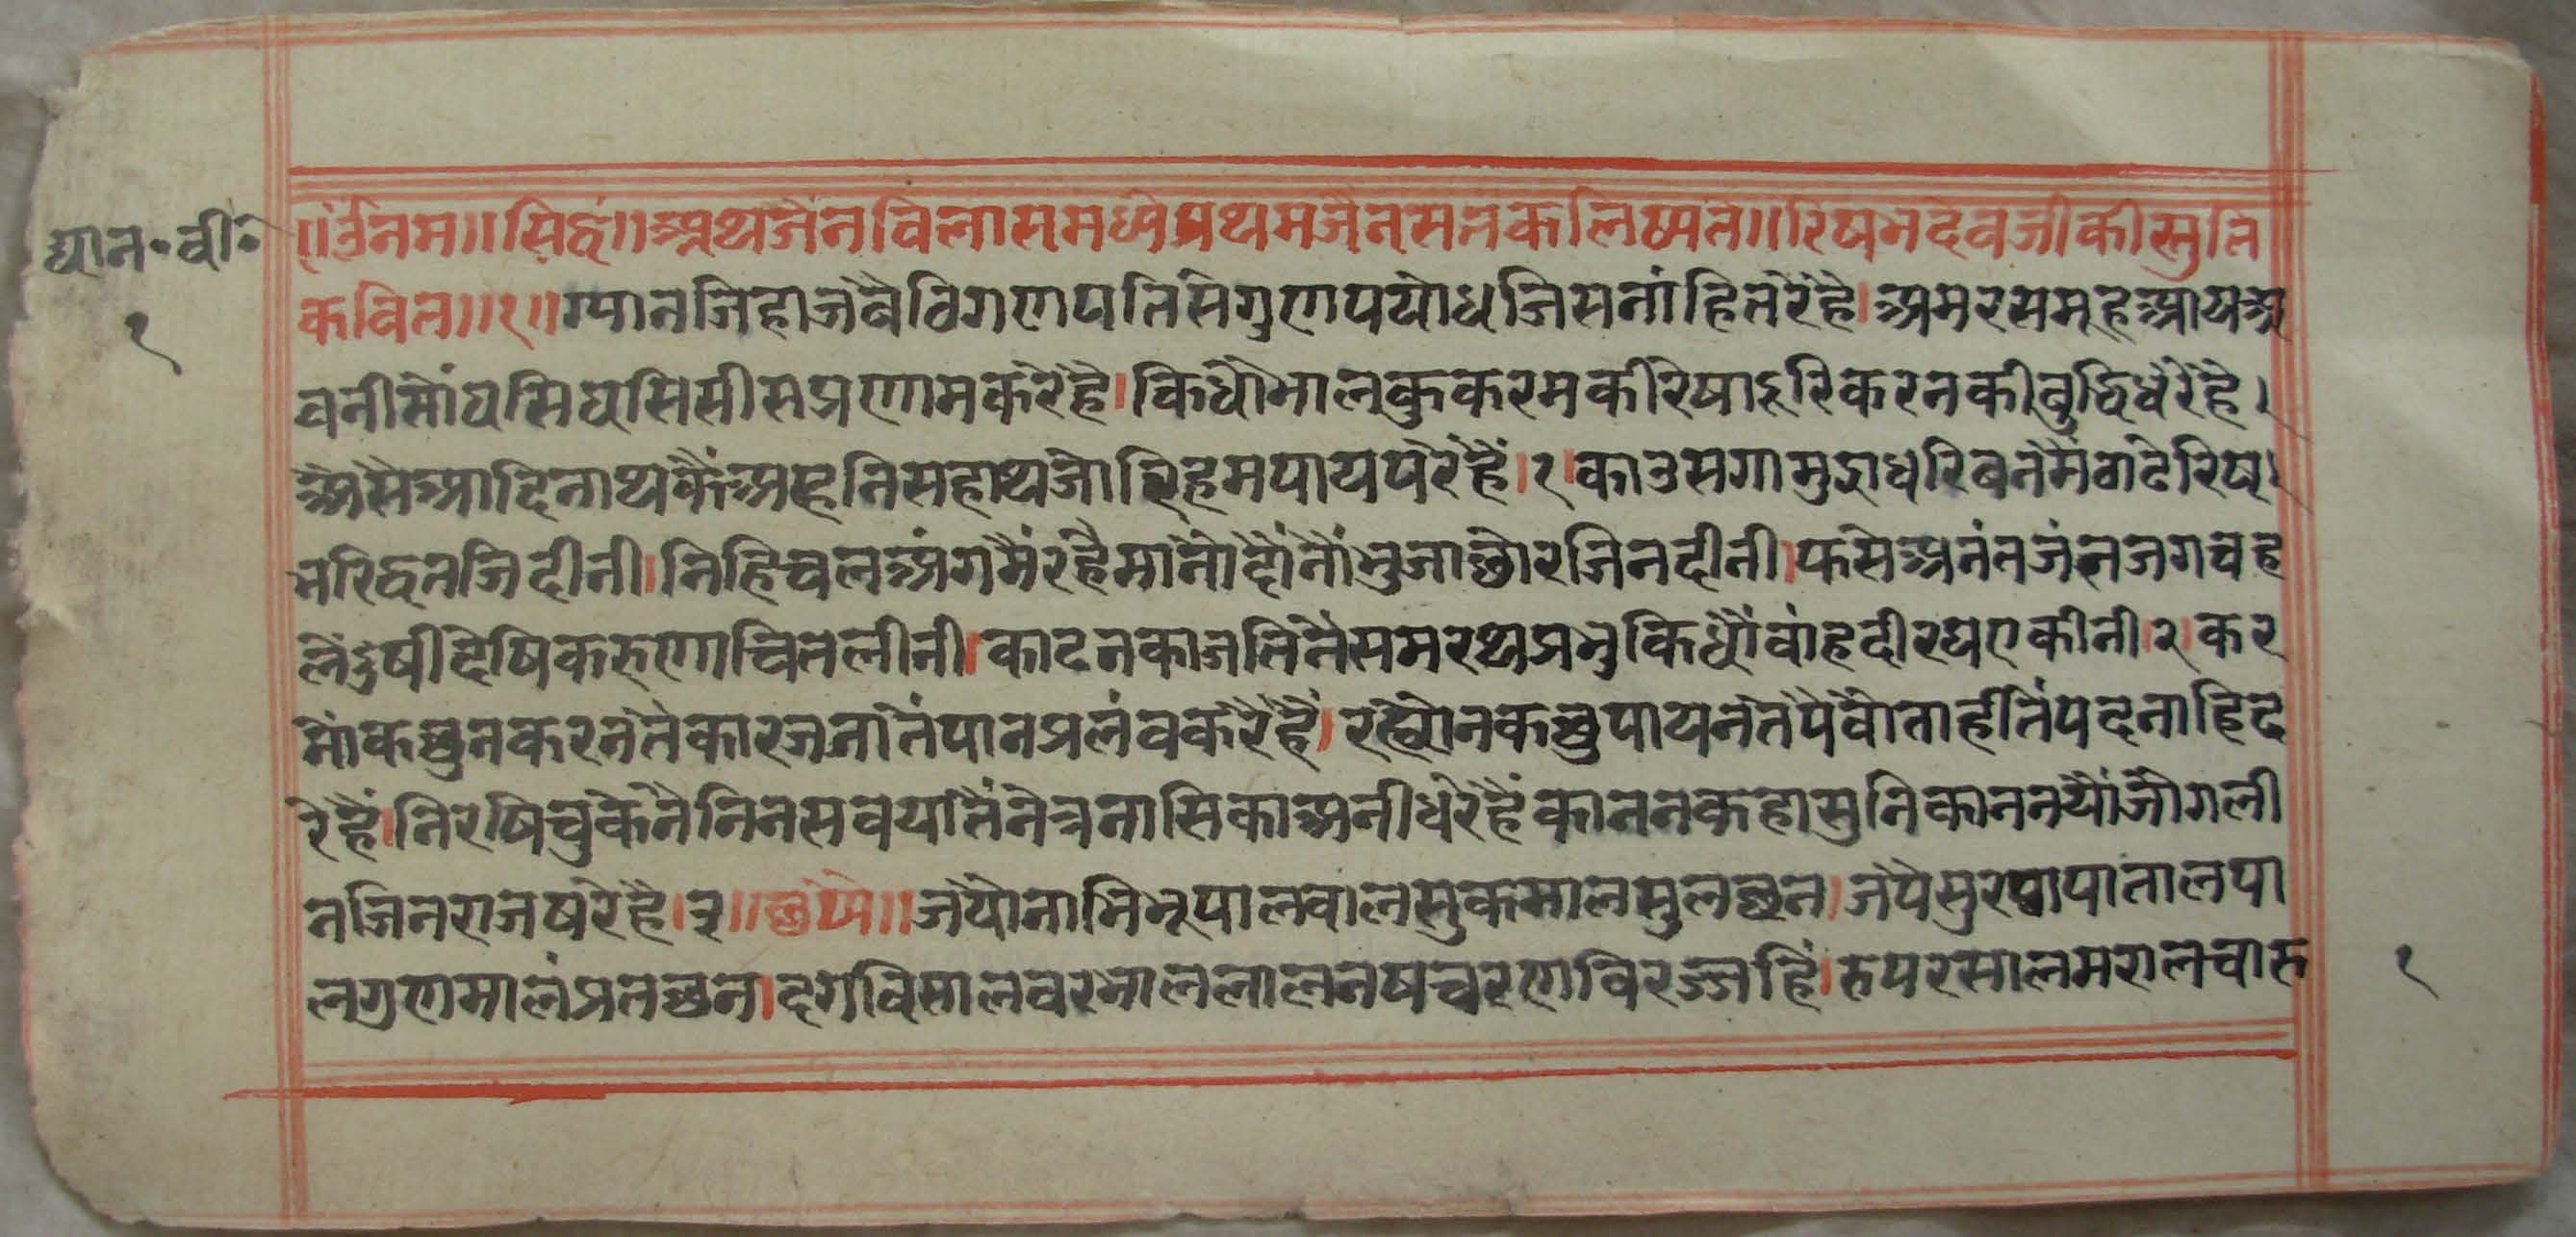 द्यान॰वी॰
१
॥ॐनम॥सिद्धं॥अथजैनविलासमध्येप्रथमजैनसतकलिष्यते॥रिषभदेवजीकीस्तुति
कवित॥१॥ग्यानजिहाजबैठिगणपतिसेगुणपयोधजिसनांहितरेंहै।अमरसमूहआयअ
वनीसोंघसिघसिसीसप्रणामकरेंहै।किधोंभालकुकरमकीरेषादूरिकरनकीबुद्धिधरेंहै।
अैसेंआदिनाथकेंअहनिसहाथजोरिहमपायपरेंहैं।१।काउसगामुद्राधरिबनमैंठाढेरिष
भरिद्धतजिदीनी।निहिचलअंगमैंरहैमांनोंदोंनोंभुजाछोरजिनदीनी।फसेअनंतजंतजगचह
लेंदुषीदेषिकरुणाचितलीनी।काढनकाजतिनैंसमरथप्रभुकिधोंबांहदीरघएकीनी।२।कर
नोंकछुनकरनंतेंकारजतातेंपानप्रलंबकरैंहैं।रह्योनकछुपायनतेंपैवोताहीतेंपदनाहिट
रेहैं।निरषिचुकेनैनिनसबयातैंनेत्रनासिकाअनीधरेहैंकाननकहासुनिकाननयौंजोगली
नजिनराजषरेहै।३।॥छप्पै॥जयौनाभिभूपालबालसुकमालसुलछन।जंपैसुरपापातालपा
लगुणमालंप्रतछन।दृगविसालवरभाललालनषचरणविरज्जहिं।रुपरसालमरालचारु
१